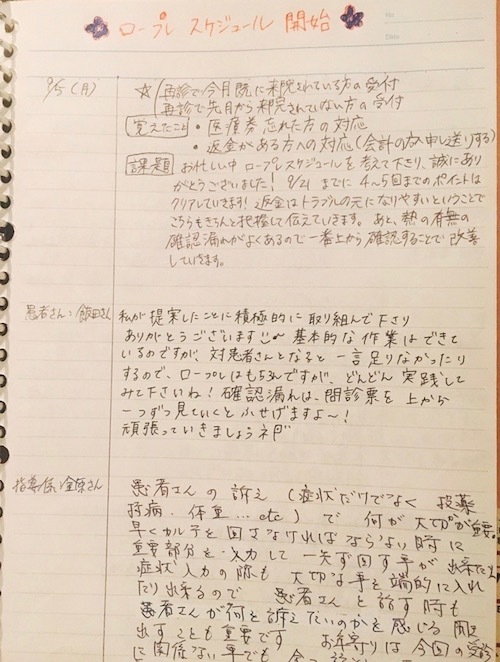 ロープレ スケジュール 開始
No.
Date
9/5(月)
☆ 再診で今月既に来院されている方の受付
再診で先月から来院されていない方の受付
覚えたこと ・医療券忘れた方の対応
・返金がある方への対応(会計の方へ申し送りする)
課題 お忙しい中 ロープレスケジュールを考えて下さり、誠にあり
がとうございました! 9/21までに 4〜5回までのポイントは
クリアしていきます! 返金はトラブルの元になりやすいということで
こちらもきちんと把握して伝えていきます。あと、熱の有無の
確認漏れがよくあるので一番上から確認することで改善
していきます。
患者さん:飯田さん
私が提案したことに積極的に取り組んで下さり
ありがとうございます 基本的な作業はできて
いるのですが、対患者さんとなると 一言足りなかったり
するので、ロープレはもちろんですが、どんどん実践して
みて下さいね! 確認漏れは、問診票を上から
一つずつ見ていくとふせげますよ〜!
頑張っていきましょうネ
金原さん
患者さんの訴え(症状だけでなく 投薬
持病・体重…etc)で 何が大切か重要
早くカルテを回さなければならない時に
重要部分を入力して一先ず回す事が出来たり
症状入力の際も 大切な事を端的に入れ
たり出来るので 患者さんと話す時も
患者さんが何を訴えたいのかを感じる
出すことも重要です お年寄りは今回の受診
に関係ない事でも